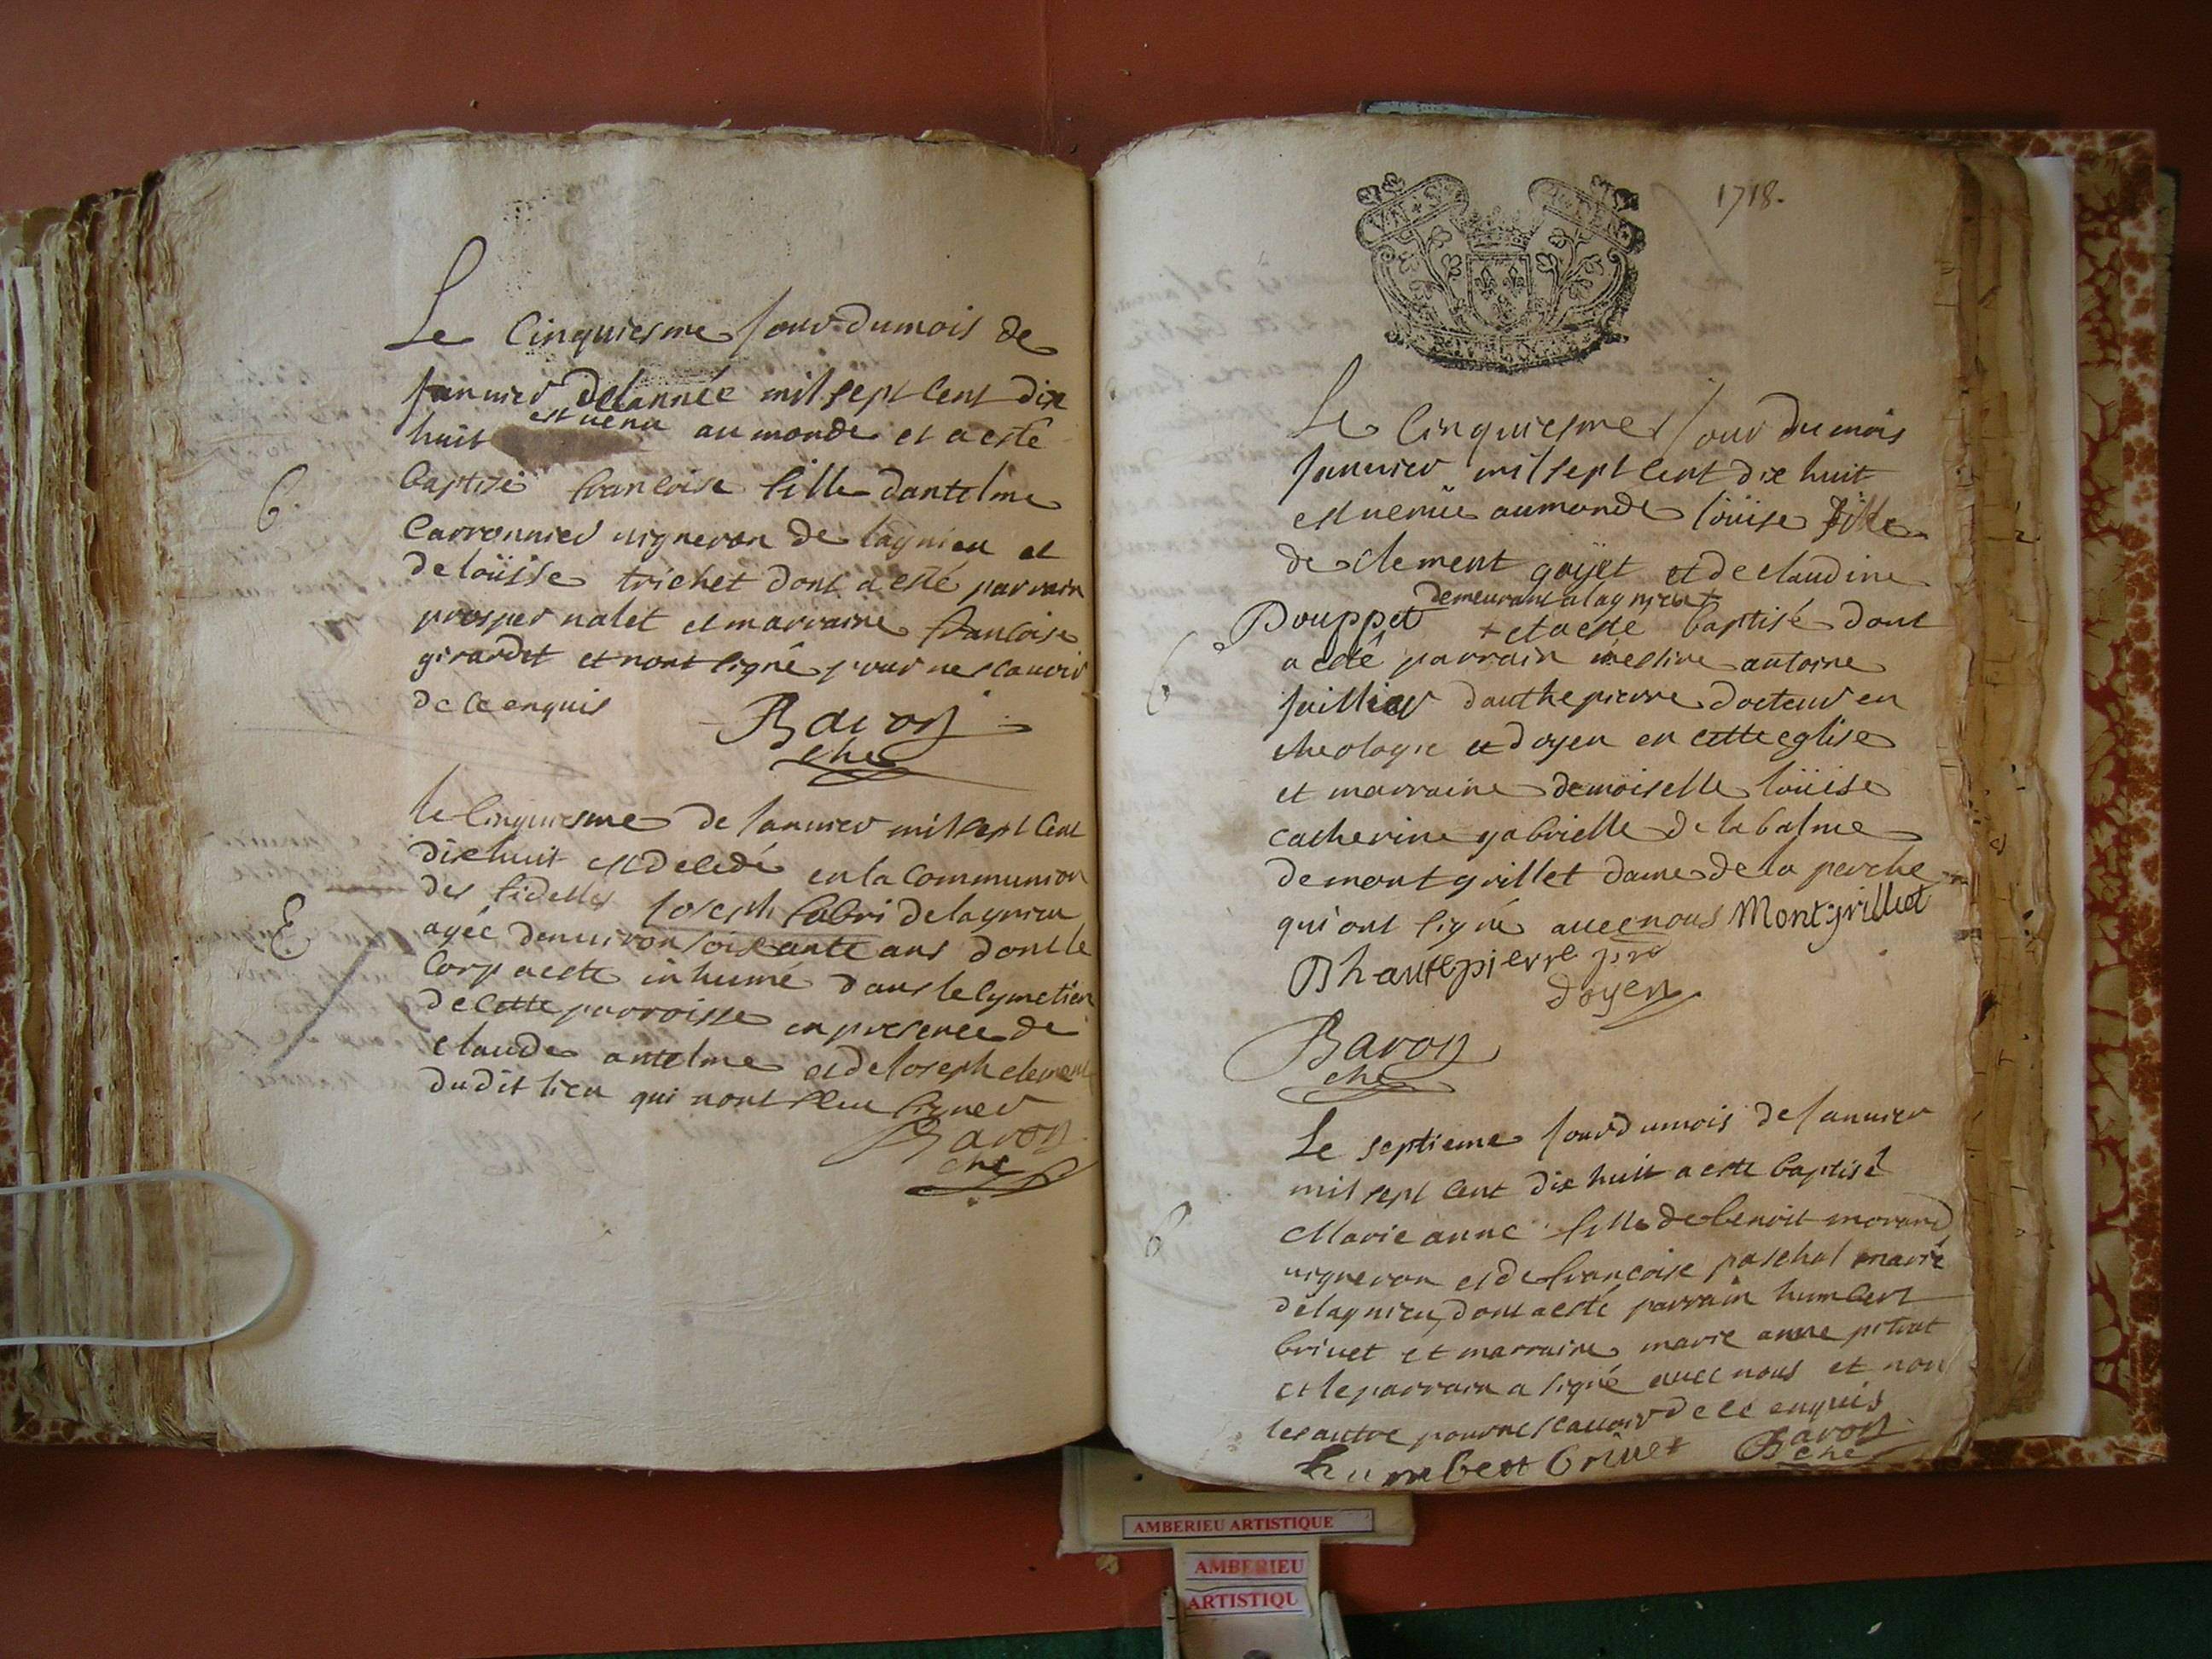 Le Cinquiesme Jour dumois de
Januier delannée mil sept Cent dix
est uenu
huit au monde et a esté
b.
baptisé francoise fille dantelme
Carronnier uigneron de lagnieu et
de loüisse trichet dont a esté parrain
prosper nalet et marraine francoise
girardet et nont signé pour ne scauoir
de ce enquis
Baron
che
le Cinquiesme de Januier mil sept Cent
dixhuit est decedé en la Communion
des fidelles Joseph fabri de lagnieu
E
agéé denuiron soixante ans dont le
Corp a esté inhumé dans le Cymetier
de Cette parroisse en presence de
Claude antelme et de Joseph clement
dudit lieu qui nont sceu signer
Baron
che
1718.
Le Cinquiesme Jour du mois
Januier mil sept Cent dix huit
est uenüe au monde loüise fille
de Clement goyet et de Claudine
demeurant a lagnieu +
Pouppet + et a esté baptisé dont
a esté parrain messire antoine
Juillier dauthepierre docteur en
theologie et doyen en cette eglise
et marraine demoiselle loüise
Catherine gabrielle de la balme
de montgrillet dame de la perche
qui ont signé auec nous Montgrillet
Dhautepierre ptre
doyen
Baron
che
Le septieme Jour du mois de Januier
mil sept Cent dix huit a esté baptisé
b
Marie anne fille de benoit morand
uigneron et de francoise paschal marié
de lagnieu, dont a esté parrain humbert
briuet et marraine marie anne pitrat
et le parrain a signé auec nous et non
les autre pour ne scauoir de ce enquis
humbert briuet Baron
che
AMBERIEU ARTISTIQUE
AMBERIEU
ARTISTIQU